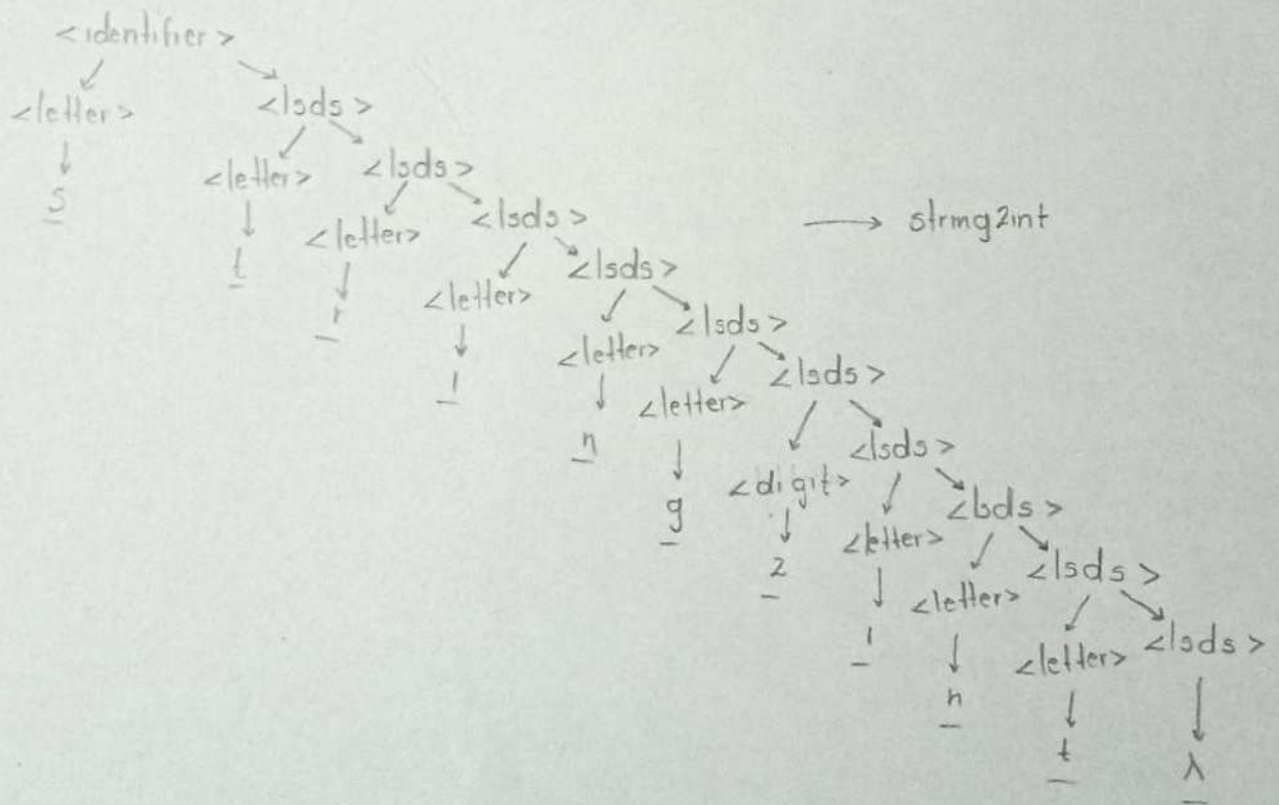 <identifier>
<letter> <lsds>
s <letter> <lsds>
t <letter> <lsds> → string2int
r <letter> <lsds>
i <letter> <lsds>
n <letter> <lsds>
g <digit> <lsds>
2 <letter> <lsds>
i <letter> <lsds>
n <letter> <lsds>
t λ